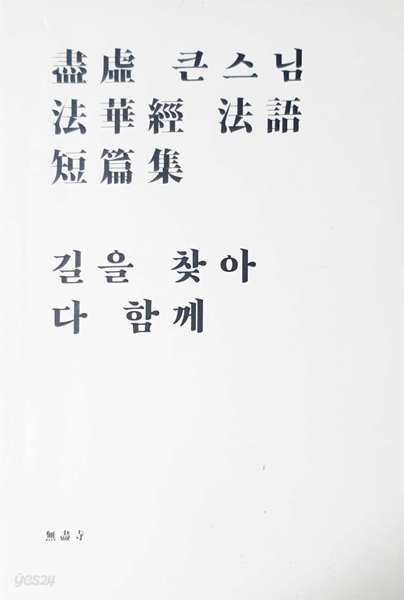 盡虛 큰스님
法華經 法語
短篇集
길을 찾아
다 함께
無盡寺
yes24